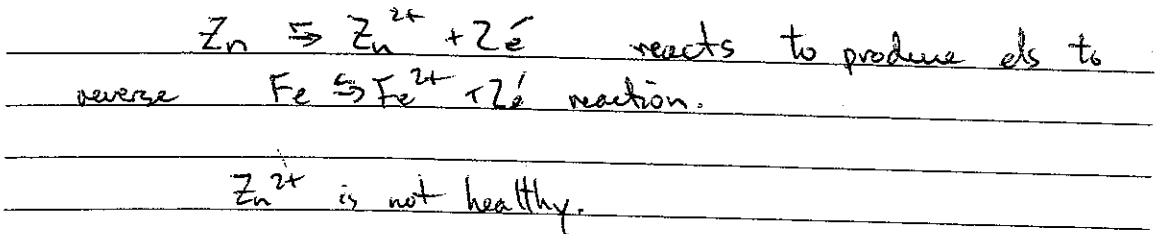 Zn ⇋ Zn²⁺ + 2é reacts to produce els to
reverse Fe ⇋ Fe²⁺ + 2é reaction.
Zn²⁺ is not healthy.